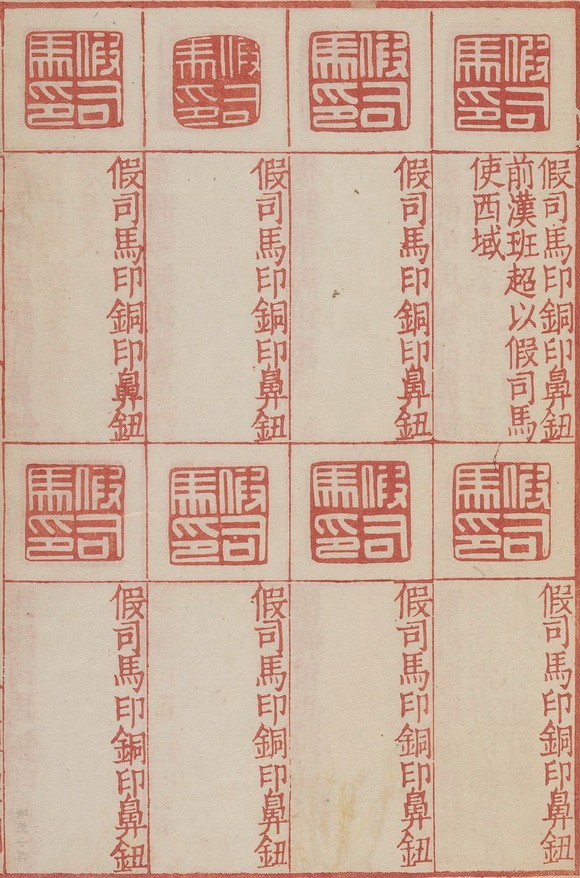 假司
馬印
假司馬印銅印鼻鈕
前漢班超以假司馬
使西域
假司
馬印
假司馬印銅印鼻鈕
假司
馬印
假司馬印銅印鼻鈕
假司
馬印
假司馬印銅印鼻鈕
假司
馬印
假司馬印銅印鼻鈕
假司
馬印
假司馬印銅印鼻鈕
假司
馬印
假司馬印銅印鼻鈕
假司
馬印
假司馬印銅印鼻鈕